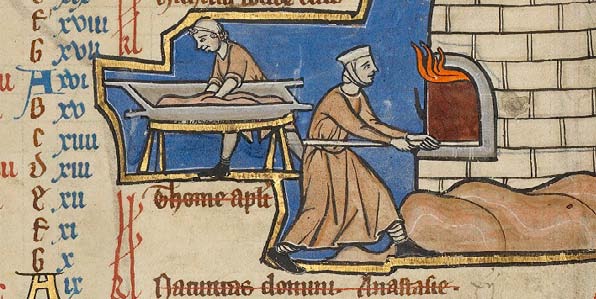 f xviii
G xvii
A xvi kl
B xv
c xiiii
d xiii
e xii Thome apli
f xi
G x
A ix Natiuitas domini. Anastasie.